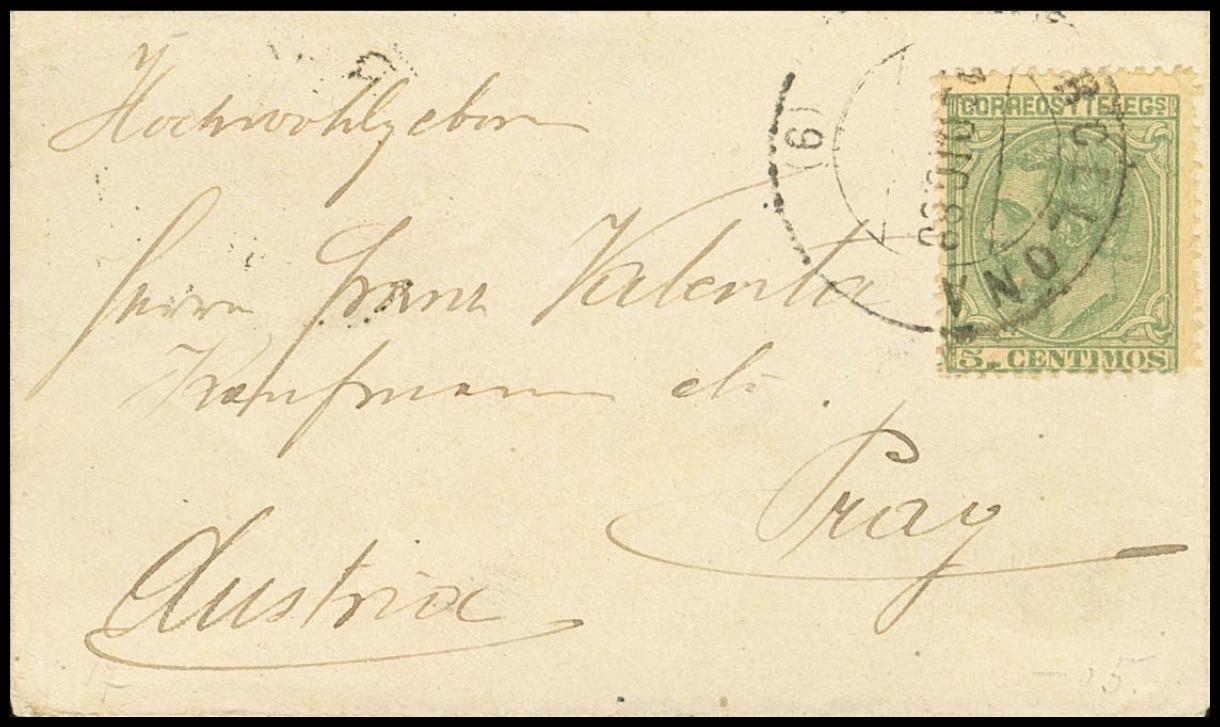 Hochwohlgeboren
Herrn Franz Valenta
Kaufmann etc.
Prag
Austria
CORREOS Y TELEGS
5. CENTIMOS
BARCELONA
(6)